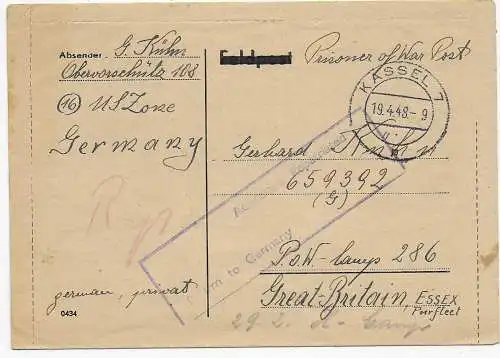 Absender: G. Kühn
Obervorschütz 108
16 US Zone
Germany
german, privat
0434
Feldpost Prisoner of War Post
KASSEL 7
19.4.48.-9
Gerhard Kühn
659392
(G)
to Germany
P.o.W camp 286
Great-Britain, ESSEX
Purfleet